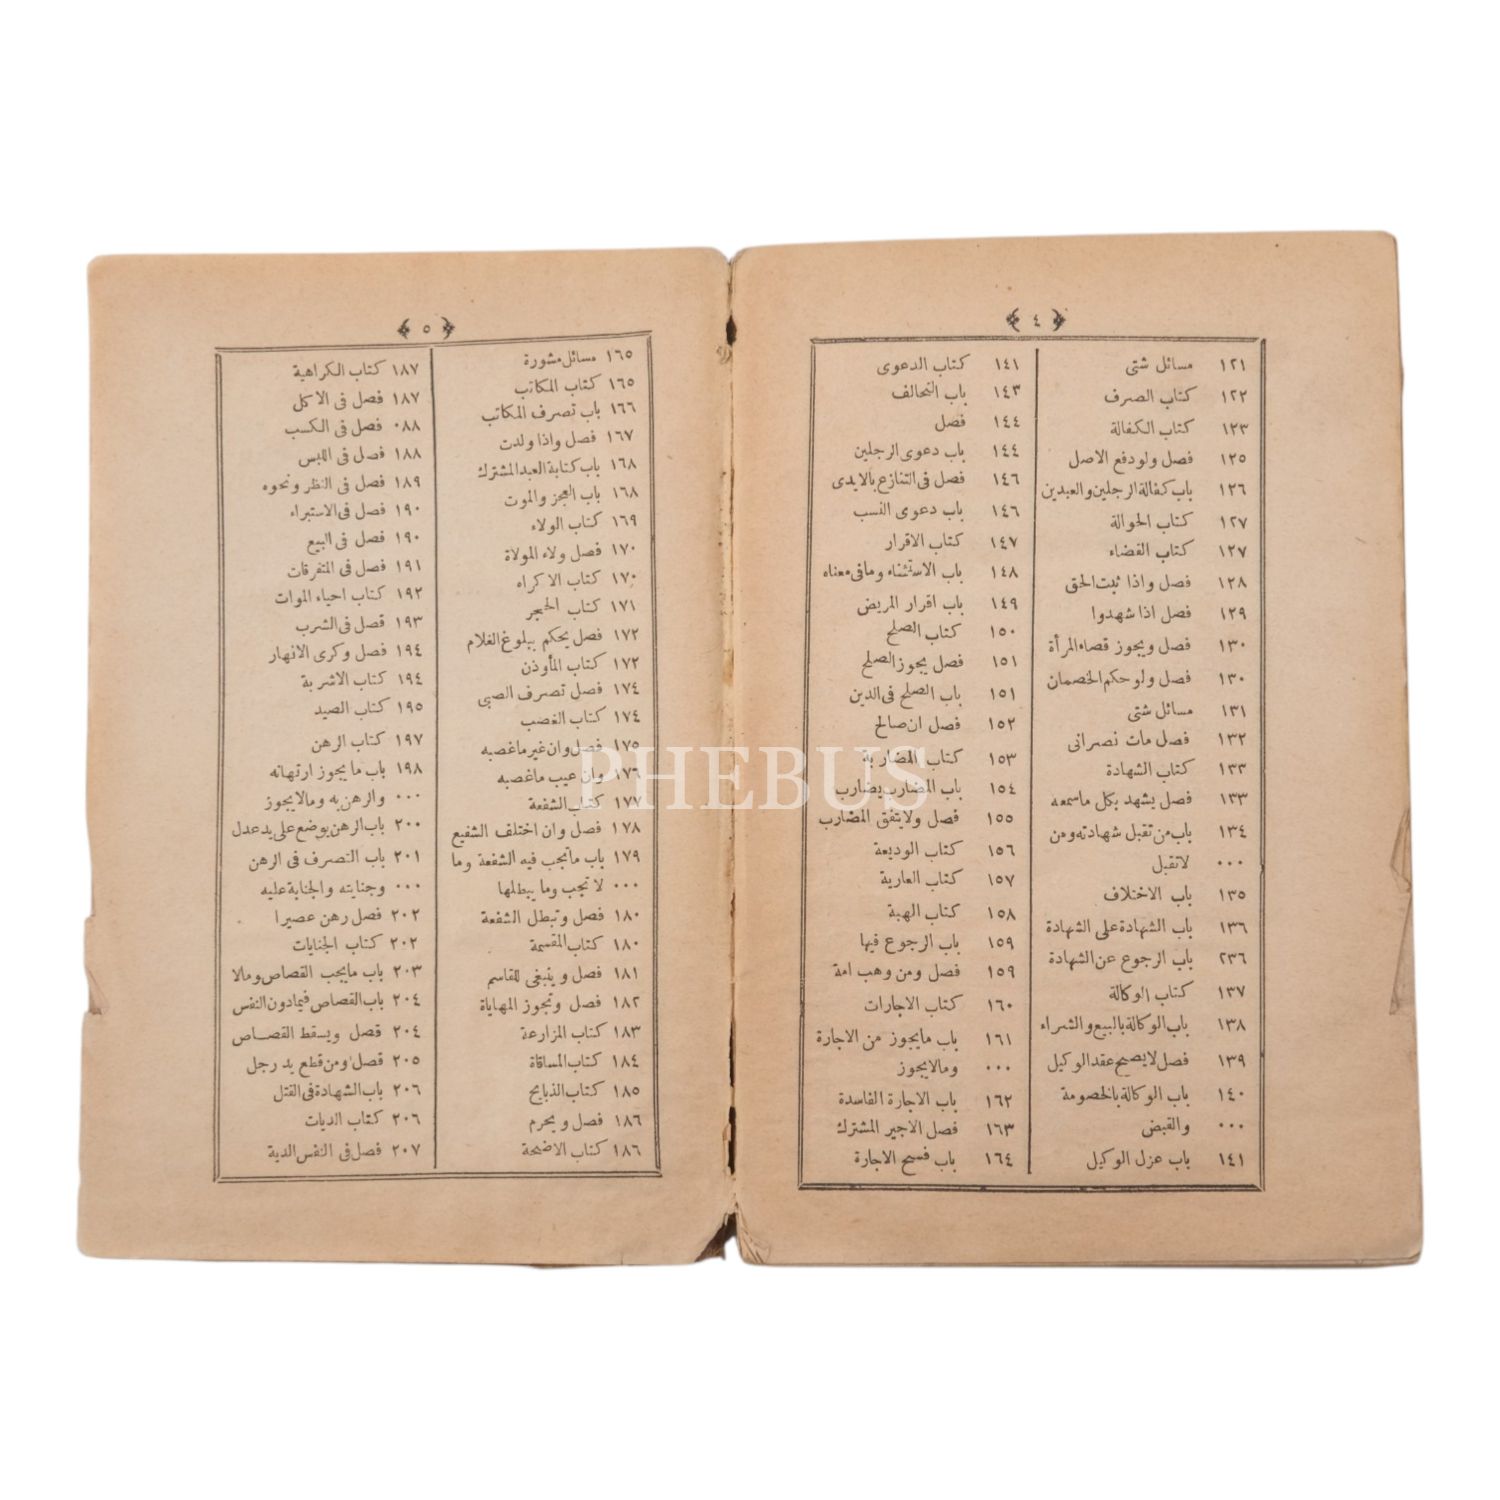 ﴿ ٤ ﴾
١٢١ مسائل شتى
١٢٢ كتاب الصرف
١٢٣ كتاب الكفالة
١٢٥ فصل ولو دفع الاصل
١٢٦ باب كفالة الرجلين والعبدين
١٢٧ كتاب الحوالة
١٢٧ كتاب القضاء
١٢٨ فصل واذا ثبت الحق
١٢٩ فصل اذا شهدوا
١٣٠ فصل ويجوز قضاء المرأة
١٣٠ فصل ولو حكم الخصمان
١٣١ مسائل شتى
١٣٢ فصل مات نصرانى
١٣٣ كتاب الشهادة
١٣٣ فصل يشهد بكل ماسمعه
١٣٤ باب من تقبل شهادته ومن
٠٠٠ لاتقبل
١٣٥ باب الاختلاف
١٣٦ باب الشهادة على الشهادة
٢٣٦ باب الرجوع عن الشهادة
١٣٧ كتاب الوكالة
١٣٨ باب الوكالة بالبيع والشراء
١٣٩ فصل لايصح عقد الوكيل
١٤٠ باب الوكالة بالخصومة
٠٠٠ والقبض
١٤١ باب عزل الوكيل
١٤١ كتاب الدعوى
١٤٣ باب التحالف
١٤٤ فصل
١٤٤ باب دعوى الرجلين
١٤٦ فصل فى التنازع بالايدى
١٤٦ باب دعوى النسب
١٤٧ كتاب الاقرار
١٤٨ باب الاستثناء ومافى معناه
١٤٩ باب اقرار المريض
١٥٠ كتاب الصلح
١٥١ فصل يجوز الصلح
١٥١ باب الصلح فى الدين
١٥٢ فصل ان صالح
١٥٣ كتاب المضاربة
١٥٤ باب المضارب يضارب
١٥٥ فصل ولايتفق المضارب
١٥٦ كتاب الوديعة
١٥٧ كتاب العارية
١٥٨ كتاب الهبة
١٥٩ باب الرجوع فيها
١٥٩ فصل ومن وهب امة
١٦٠ كتاب الاجارات
١٦١ باب مايجوز من الاجارة
٠٠٠ ومالايجوز
١٦٢ باب الاجارة الفاسدة
١٦٣ فصل الاجير المشترك
١٦٤ باب فسخ الاجارة
﴿ ٥ ﴾
١٦٥ مسائل منثورة
١٦٥ كتاب المكاتب
١٦٦ باب تصرف المكاتب
١٦٧ فصل واذا ولدت
١٦٨ باب كتابة العبد المشترك
١٦٨ باب العجز والموت
١٦٩ كتاب الولاء
١٧٠ فصل ولاء المولاة
١٧٠ كتاب الاكراه
١٧١ كتاب الحجر
١٧٢ فصل يحكم ببلوغ الغلام
١٧٢ كتاب المأوذن
١٧٤ فصل تصرف الصبى
١٧٤ كتاب الغصب
١٧٥ فصل وان غير ماغصبه
١٧٦ وان عيب ماغصبه
١٧٧ كتاب الشفعة
١٧٨ فصل وان اختلف الشفيع
١٧٩ باب ماتجب فيه الشفعة وما
٠٠٠ لاتجب وما يبطلها
١٨٠ فصل وتبطل الشفعة
١٨٠ كتاب القسمة
١٨١ فصل وينبغى للقاسم
١٨٢ فصل وتجوز المهاياة
١٨٣ كتاب المزارعة
١٨٤ كتاب المساقاة
١٨٥ كتاب الذبايح
١٨٦ فصل ويحرم
١٨٦ كتاب الاضحة
١٨٧ كتاب الكراهية
١٨٧ فصل فى الاكل
٠٨٨ فصل فى الكسب
١٨٨ فصل فى اللبس
١٨٩ فصل فى النظر ونحوه
١٩٠ فصل فى الاستبراء
١٩٠ فصل فى البيع
١٩١ فصل فى المتفرقات
١٩٢ كتاب احياء الموات
١٩٣ فصل فى الشرب
١٩٤ فصل وكرى الانهار
١٩٤ كتاب الاشربة
١٩٥ كتاب الصيد
١٩٧ كتاب الرهن
١٩٨ باب مايجوز ارتهانه
٠٠٠ والرهن به ومالايجوز
٢٠٠ باب الرهن يوضع على يد عدل
٢٠١ باب التصرف فى الرهن
٠٠٠ وجنايته والجناية عليه
٢٠٢ فصل رهن عصيرا
٢٠٢ كتاب الجنايات
٢٠٣ باب مايجب القصاص ومالا
٢٠٤ باب القصاص فيمادون النفس
٢٠٤ فصل ويسقط القصاص
٢٠٥ فصل ومن قطع يد رجل
٢٠٦ باب الشهادة فى القتل
٢٠٦ كتاب الديات
٢٠٧ فصل فى النفس الدية
PHEBUS